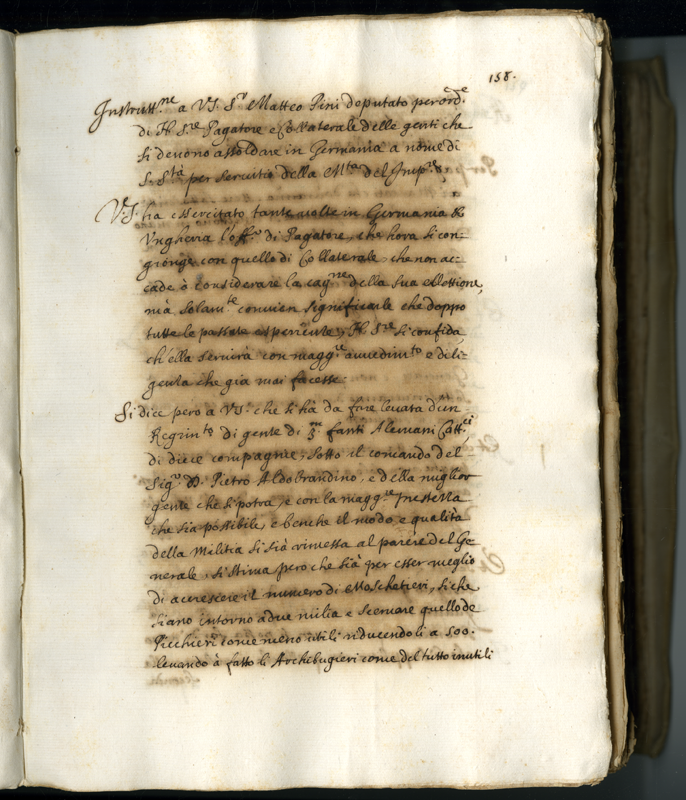 158.
Instrutt.ne a V.S. S.r Matteo Pini deputato per ord.e
di N. S.re Pagatore e Collaterale delle genti che
si devono assoldare in Germania a nome di
S. S.tà per servitio della M.tà del Imp.re
V.S. ha essercitato tante volte in Germania &
Ungheria l'off.o di Pagatore, che hora si con-
gionge con quello di Collaterale, che non ac-
cade à considerare la cag.ne della sua elettione,
mà solam.te convien significarle che doppo
tutte le passate esperienze, N. S.re si confida,
ch'ella servirà con magg.re avvedim.to e dili-
genza che già mai facesse.
Si dice però a V.S. che si hà da fare levata d'un
Regim.to di gente di 3.m fanti Alemani Catt.ci
di diece compagnie, sotto il comando del
Sig.r D. Pietro Aldobrandino, e della miglior
gente che si potrà, e con la magg.re prestezza
che sia possibile, e benche il modo, e qualità
della Militia si sia rimessa al parere del Ge-
nerale, si stima però che sia per esser meglio
di accrescere il numero di Moschetieri, si che
siano intorno a due milia e scemare quello de
Picchieri come meno utili riducendoli a 500.
levando à fatto li Archibugieri come del tutto inutili